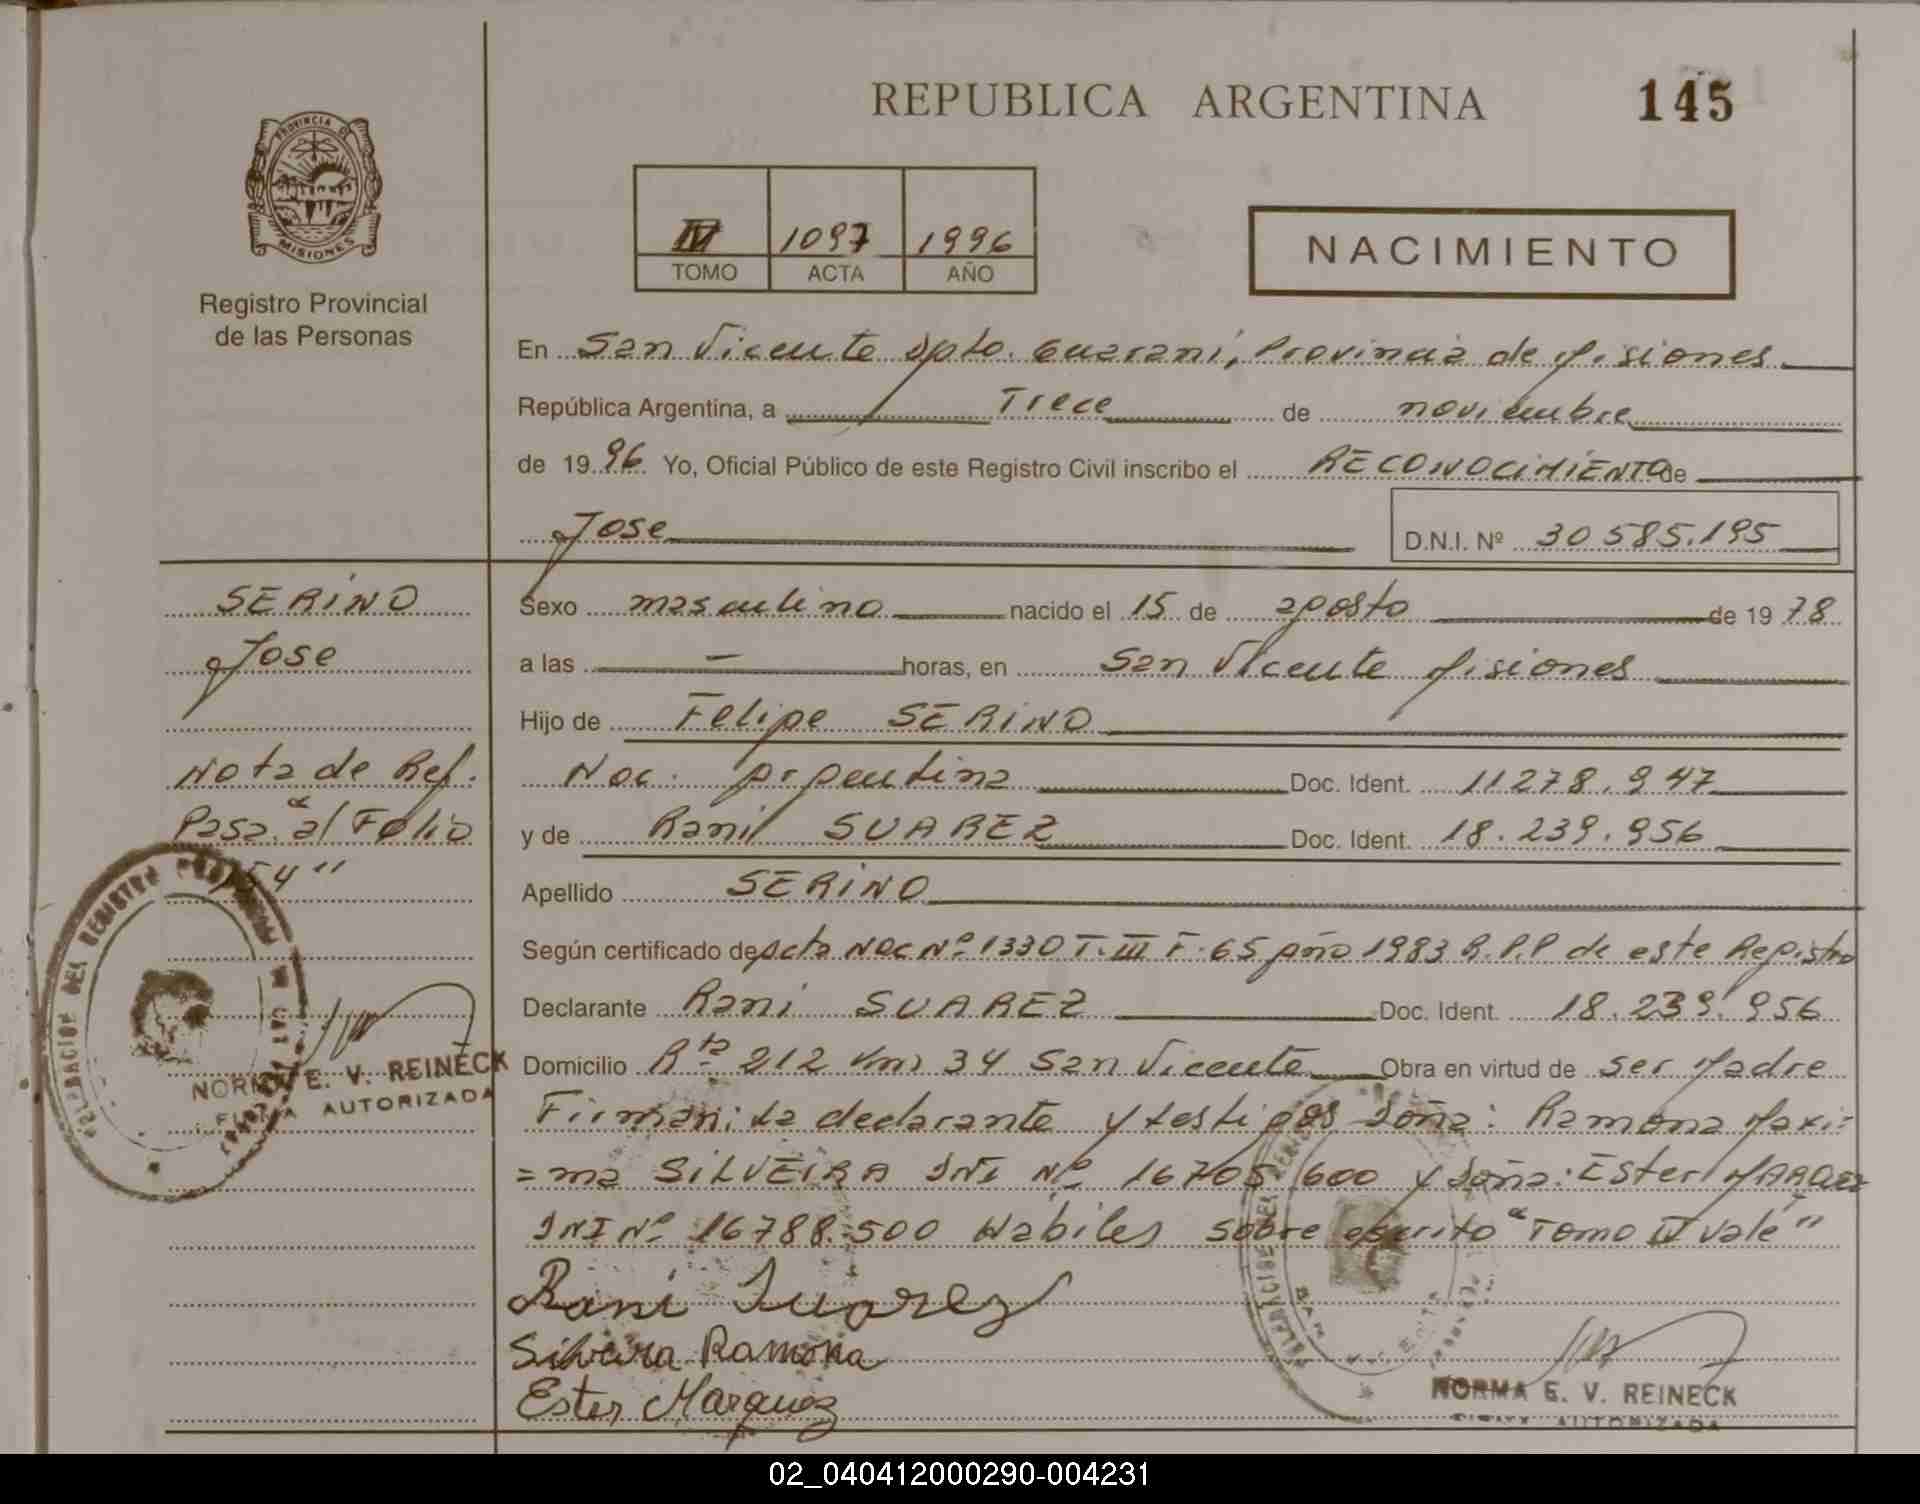 REPUBLICA ARGENTINA
145
PROVINCIA DE
MISIONES
Registro Provincial
de las Personas
IV 1097 1996
TOMO ACTA AÑO
NACIMIENTO
En San Vicente Dpto. Guarani, Provincia de Misiones
República Argentina, a Trece de noviembre
de 1996 Yo, Oficial Público de este Registro Civil inscribo el RECONOCIMIENTO de
Jose
D.N.I. Nº 30.585.195
SERINO
Jose
Nota de Ref.
Pasa "al Folio
154"
NORMA E. V. REINECK
FIRMA AUTORIZADA
Sexo masculino nacido el 15 de agosto de 1978
a las — horas, en San Vicente Misiones
Hijo de Felipe SERINO
Nac. Argentina Doc. Ident. 11278.947
y de Rani SUAREZ Doc. Ident. 18.239.956
Apellido SERINO
Según certificado de Acta NAC Nº 1330 T. III F. 65 Año 1983 R.P.P de este Registro
Declarante Rani SUAREZ Doc. Ident. 18.239.956
Domicilio Rta 212 Km 34 San Vicente Obra en virtud de ser Madre
Firman: la declarante y testigos Doña: Ramona Maxi=
=ma SILVEIRA DNI Nº 16705.600 y Doña: Ester MARQUEZ
DNI Nº 16788.500 Habiles sobre escrito "Tomo IV Vale"
Rani Suarez
Silveira Ramona
Ester Marquez
NORMA E. V. REINECK
FIRMA AUTORIZADA
02_040412000290-004231